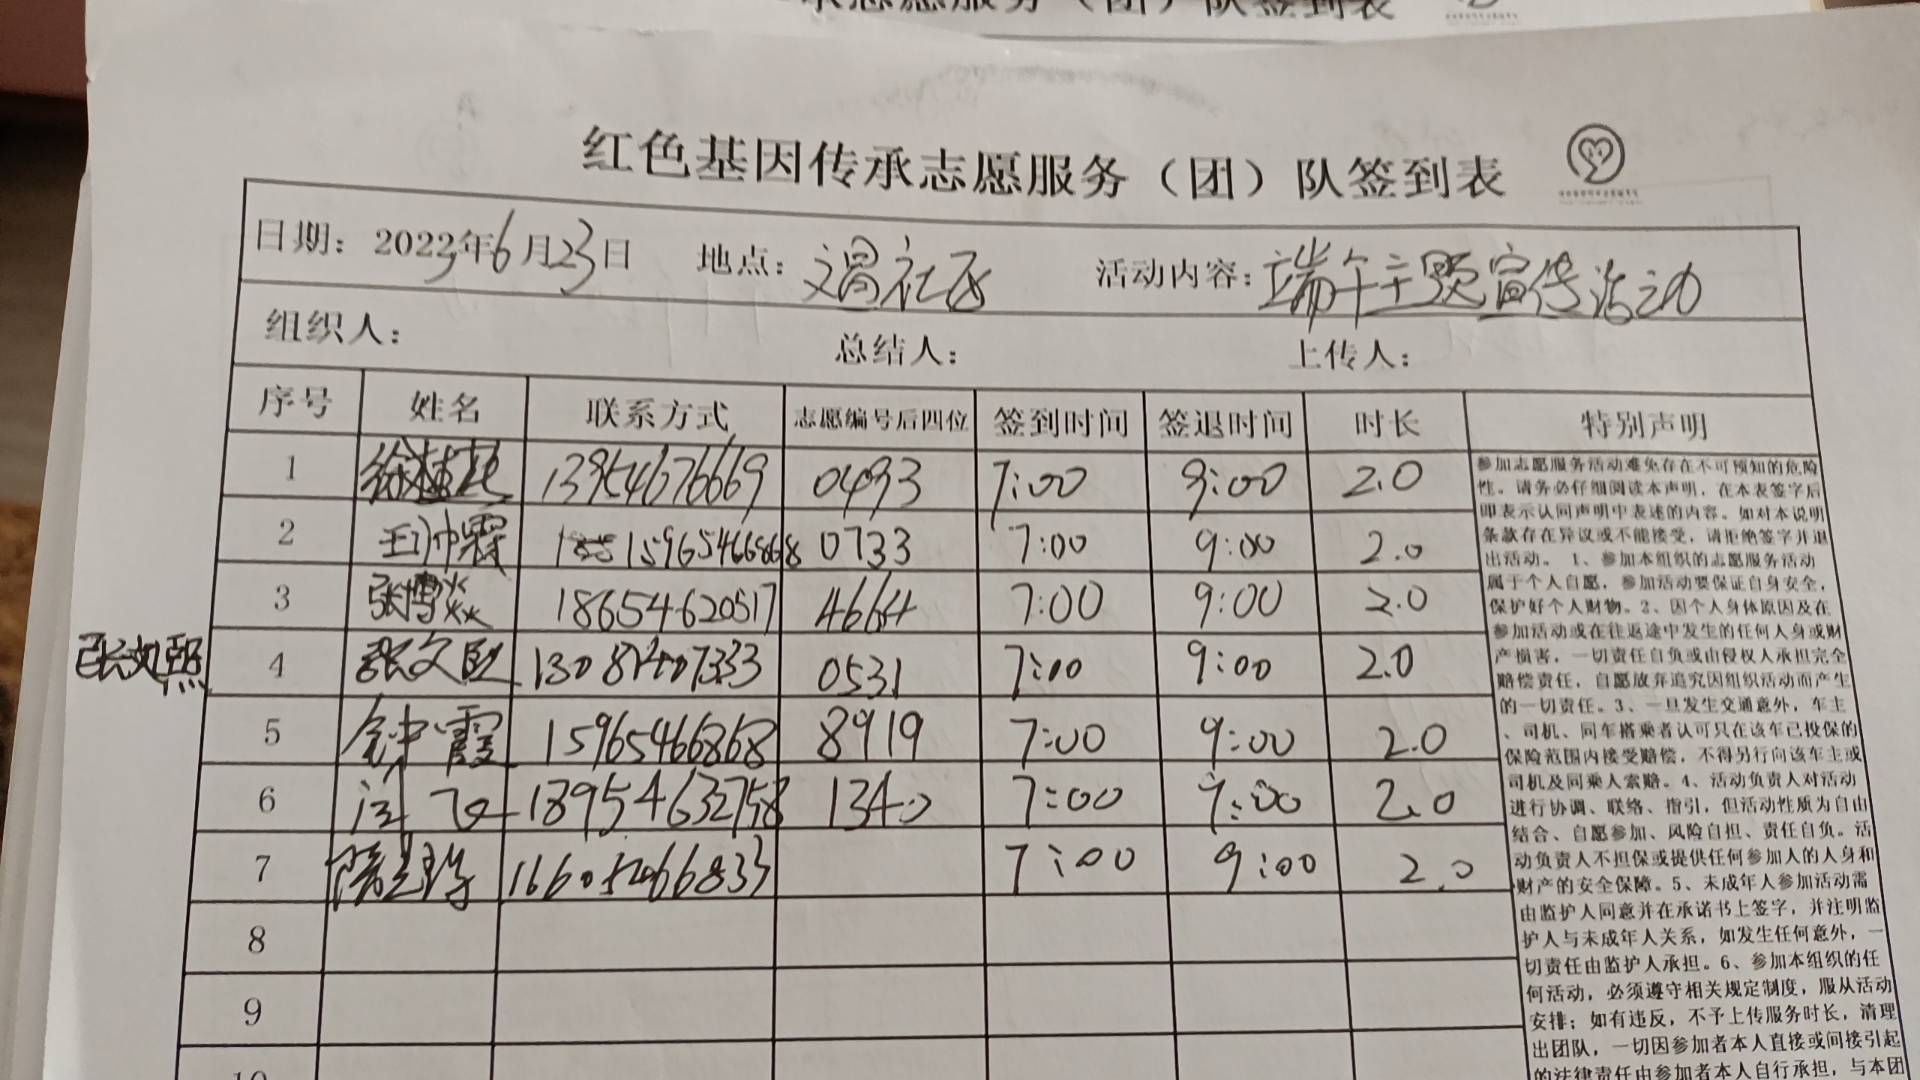 红色基因传承志愿服务（团）队签到表
日期：2023年6月23日 地点：文昌社区 活动内容：端午主题宣传活动
组织人： 总结人： 上传人：
序号 姓名 联系方式 志愿编号后四位 签到时间 签退时间 时长 特别声明
1 13954676669 0493 7:00 9:00 2.0
2 15965466868 0733 7:00 9:00 2.0
3 张博焱 18654620517 4664 7:00 9:00 2.0
张文熙 4 张文熙 0531 7:00 9:00 2.0
5 钟霞 15965466868 8919 7:00 9:00 2.0
6 18954632758 1340 7:00 9:00 2.0
7 7:00 9:00 2.0
8
9
10
参加志愿服务活动难免存在不可预知的危险
性。请务必仔细阅读本声明，在本表签字后
即表示认同声明中表述的内容。如对本说明
条款存在异议或不能接受，请拒绝签字并退
出活动。 1、参加本组织的志愿服务活动
属于个人自愿，参加活动要保证自身安全，
保护好个人财物。2、因个人身体原因及在
参加活动或在往返途中发生的任何人身或财
产损害，一切责任自负或由侵权人承担完全
赔偿责任，自愿放弃追究因组织活动而产生
的一切责任。3、一旦发生交通意外，车主
、司机、同车搭乘者认可只在该车已投保的
保险范围内接受赔偿，不得另行向该车主或
司机及同乘人索赔。4、活动负责人对活动
进行协调、联络、指引，但活动性质为自由
结合、自愿参加、风险自担、责任自负。活
动负责人不担保或提供任何参加人的人身和
财产的安全保障。5、未成年人参加活动需
由监护人同意并在承诺书上签字，并注明监
护人与未成年人关系，如发生任何意外，一
切责任由监护人承担。6、参加本组织的任
何活动，必须遵守相关规定制度，服从活动
安排；如有违反，不予上传服务时长，清理
出团队，一切因参加者本人直接或间接引起
的法律责任由参加者本人自行承担，与本团